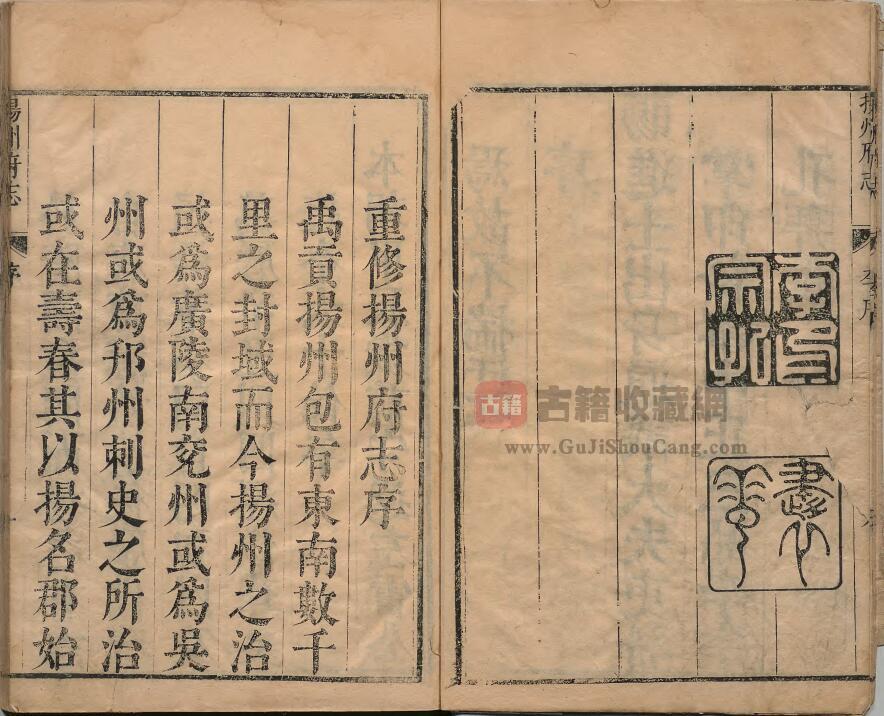 重修揚州府志序
禹貢揚州包有東南數千
里之封域而今揚州之治
或爲廣陵南兖州或爲吳
州或爲邗州刺史之所治
或在壽春其以揚名郡始
揚州府志
序
一
揚州府志
李序
古籍
古籍收藏網
www.GuJiShouCang.com